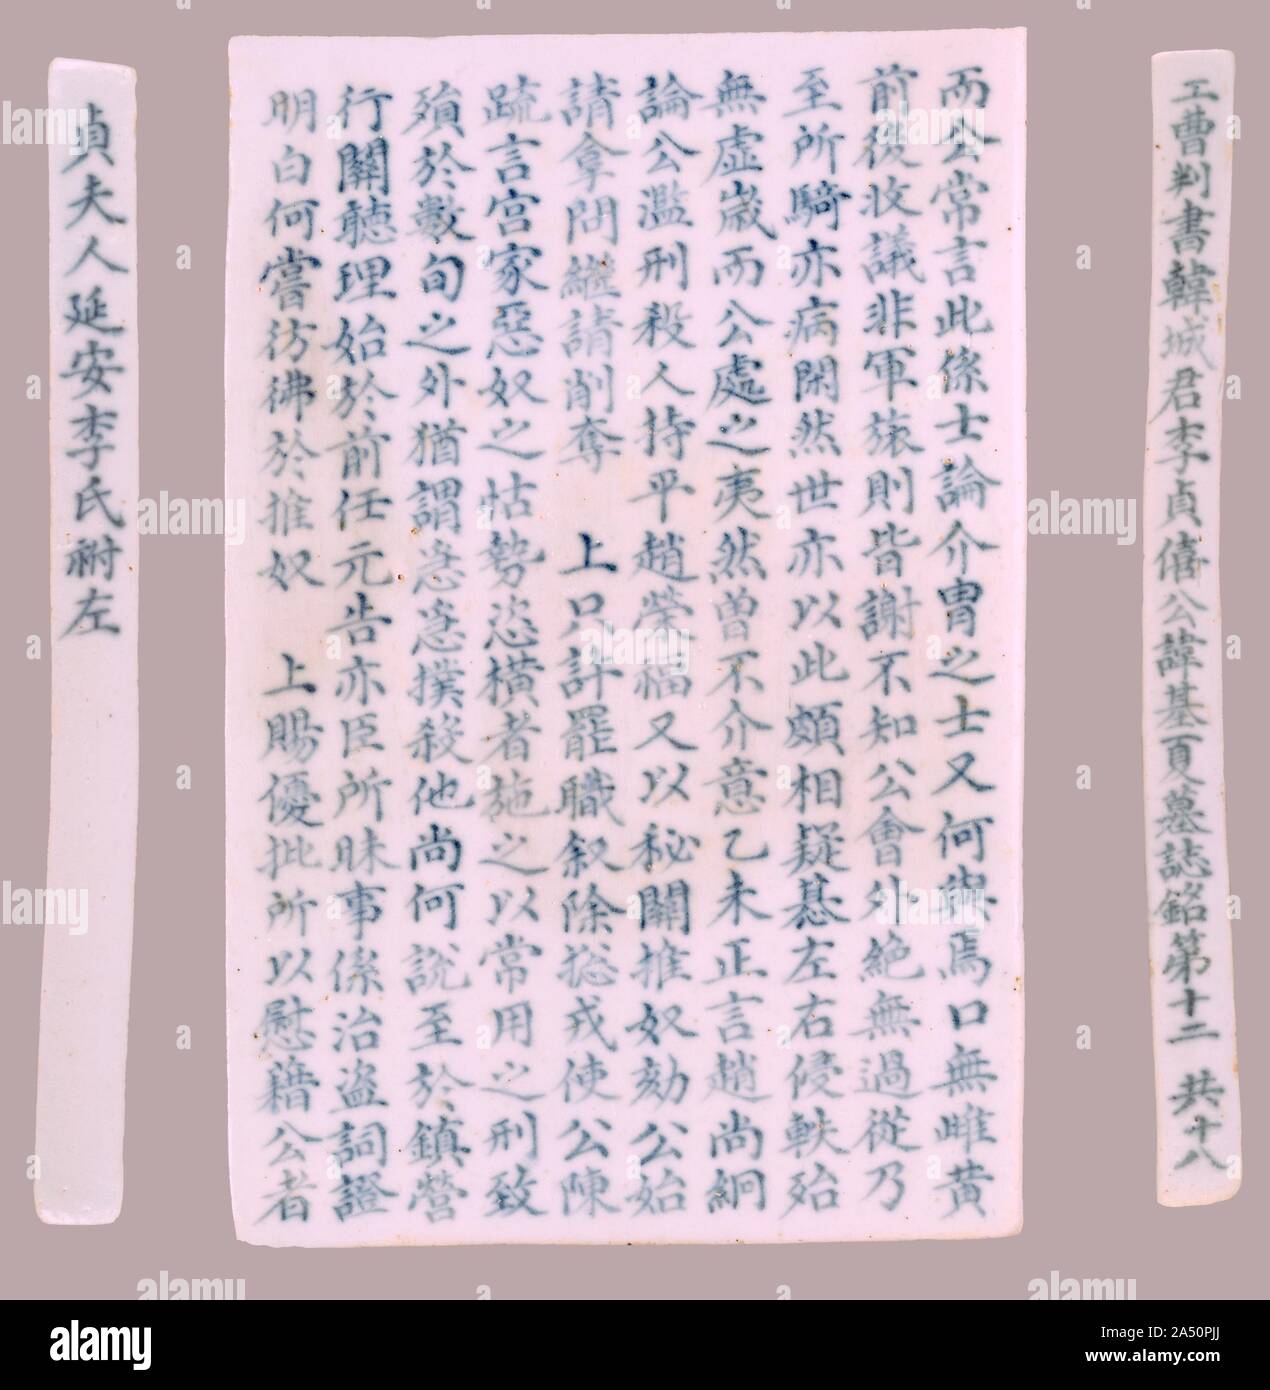 工曹判書韓城君李貞僖公諱基夏墓誌銘第十二 共十八
而公常言此係士論介胄之士又何與焉口無雌黃
前後收議非軍旅則皆謝不知公會外絶無過從乃
至所騎亦病閑然世亦以此頗相疑惎左右侵軼殆
無虛嵗而公處之夷然曾不介意乙未正言趙尚絅
論公濫刑殺人持平趙榮福又以秘關推奴劾公始
請拿問繼請削奪 上只許罷職叙除捴戎使公陳
疏言宫家惡奴之怙勢恣橫者施之以常用之刑致
殞於數旬之外猶謂恣意撲殺他尚何說至於鎮營
行關聽理始於前任元告亦臣所昧事係治盗詞證
明白何嘗彷彿於推奴 上賜優批所以慰藉公者
貞夫人延安李氏祔左
alamy
Image ID: 2A50PJJ
www.alamy.com